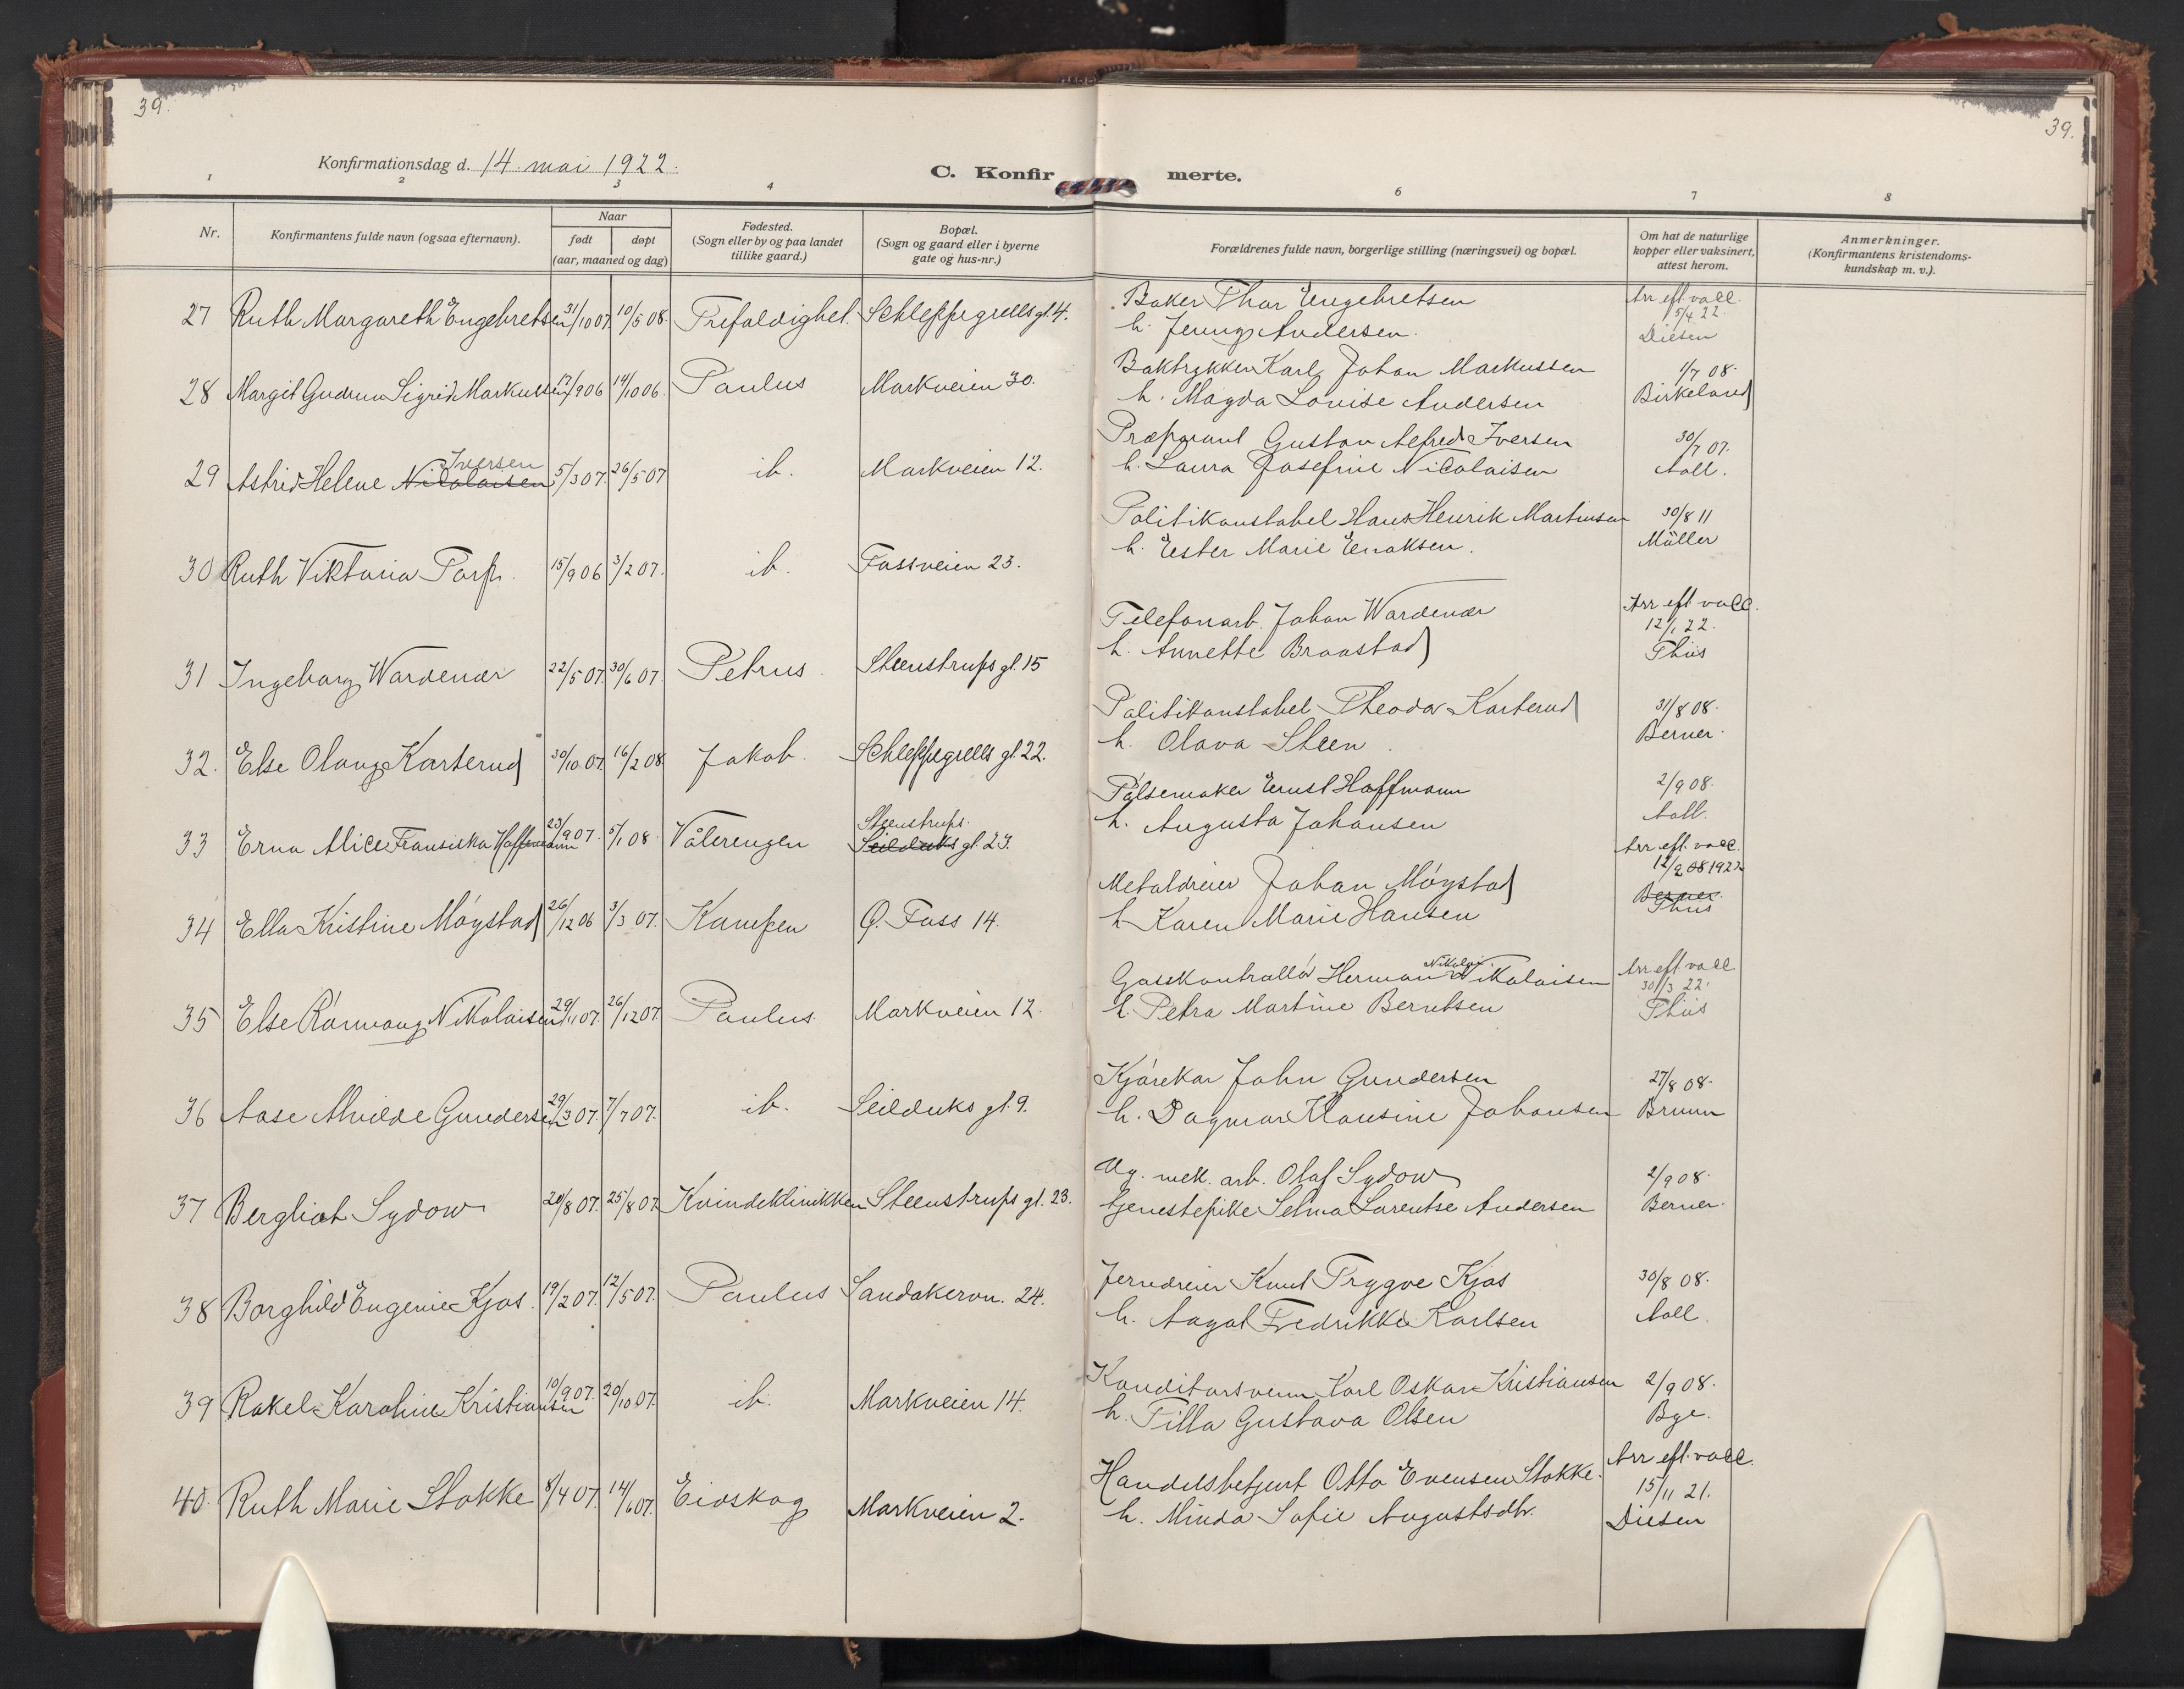 39.
39.
Konfirmationsdag d. 14. mai 1922.
C. Konfirmerte.
1 2 3 4 6 7 8
Nr.
Konfirmantens fulde navn (ogsaa efternavn).
Naar
født
døpt
(aar, maaned og dag)
Fødested.
(Sogn eller by og paa landet
tillike gaard.)
Bopæl.
(Sogn og gaard eller i byerne
gate og hus-nr.)
Forældrenes fulde navn, borgerlige stilling (næringsvei) og bopæl.
Om hat de naturlige
kopper eller vaksinert,
attest herom.
Anmerkninger.
(Konfirmantens kristendoms-
kundskap m. v.).
27 Ruth Margareth Engebretsen 31/10 07. 10/5 08. Trefoldighet. Schleppegrells gt. 4.
Baker Thor Engebretsen
h. Jenny Andersen.
Arr eft vacc.
5/4 22.
Diesen
28 Margit Gudrun Sigrid Markussen 17/9 06 14/10 06. Paulus Markveien 30.
Boktrykker Karl Johan Markussen
h. Magda Lovise Andersen
1/7 08.
Birkeland
29 Astrid Helene Nicolaisen Iversen 5/3 07. 26/5 07 ib. Markveien 12.
Gustav Alfred Iversen
h. Laura Josefine Nicolaisen
30/7 07.
Aall.
30 Ruth Viktoria Torp. 15/9 06 3/2 07. ib. Fossveien 23.
Politikonstabel Hans Henrik Martinsen
h. Ester Marie Enoksen.
30/8 11
Müller
31 Ingeborg Wardenær 22/5 07. 30/6 07. Petrus. Steenstrups gt. 15
Telefonarb. Johan Wardenær
h. Annette Braastad
Arr eft vacc.
12/1 22.
Thiis
32. Else Olaug Karterud 30/10 07. 16/2 08 Jakob. Schleppegrells gt. 22.
Politikonstabel Theodor Karterud
h. Olava Steen.
31/8 08.
Berner.
33 Erna Alice Fransiska Hoffmann 23/9 07. 5/1 08. Vålerengen Steenstrups. Seilduks gt. 23.
Pølsemaker Ernst Hoffmann
h. Augusta Johansen
2/9 08.
Aall.
34 Ella Kristine Møystad 26/12 06 3/3 07. Kampen Ø. Foss 14.
Metaldreier Johan Møystad
h. Karen Marie Hansen
Arr eft. vacc.
12/2 08 1922
Berner.
Thiis
35 Else Rønnaug Nikolaisen 29/11 07. 26/12 07. Paulus Markveien 12.
Gasskontrollør Herman Nikolai Nikolaisen
h. Petra Martine Berntsen
Arr eft vacc
30/3 22.
Thiis
36 Aase Alvilde Gundersen 29/3 07. 7/7 07. ib. Seilduks gt. 9.
Kjørekar John Gundersen
h. Dagmar Klausine Johansen
27/8 08.
Bruun
37 Bergliot Sydow 20/8 07. 25/8 07. Kvindeklinikken Steenstrups gt. 23.
Ug. mek. arb. Olaf Sydow
tjenestepike Selma Lorentse Andersen
2/9 08.
Berner.
38 Borghild Eugenie Kjos. 19/2 07. 12/5 07. Paulus Sandakervn. 24.
Jerndreier Knut Trygve Kjos
h. Aagot Fredrikke Karlsen
30/8 08.
Aall.
39 Rakel Karoline Kristiansen 10/9 07. 20/10 07. ib. Markveien 14.
Konditorsvenn Karl Oskar Kristiansen
h. Tilla Gustava Olsen
2/9 08.
Bye.
40. Ruth Marie Stokke 8/4 07. 14/6 07. Eidskog Markveien 2.
Handelsbetjent Otto Evensen Stokke.
h. Minda Sofie Augustsdtr.
Arr eft vacc.
15/11 21.
Diesen